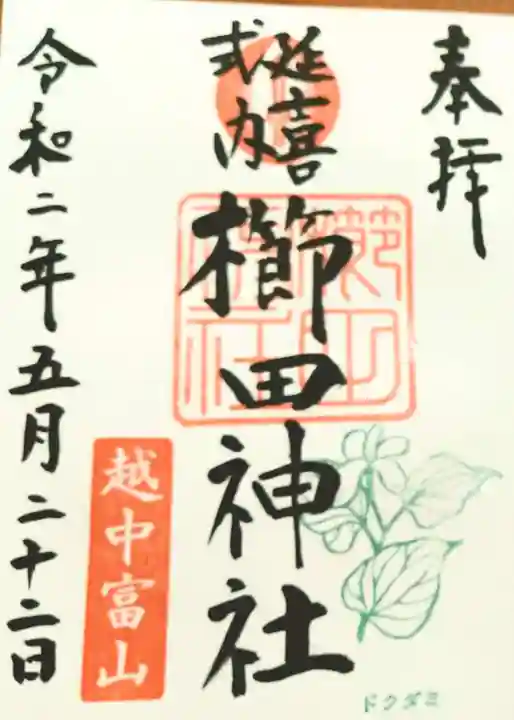 奉拝
延喜
式内
櫛田神社
越中富山
令和二年五月二十二日
ドクダミ